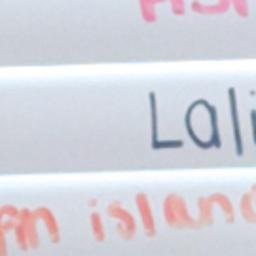 Lali
an island